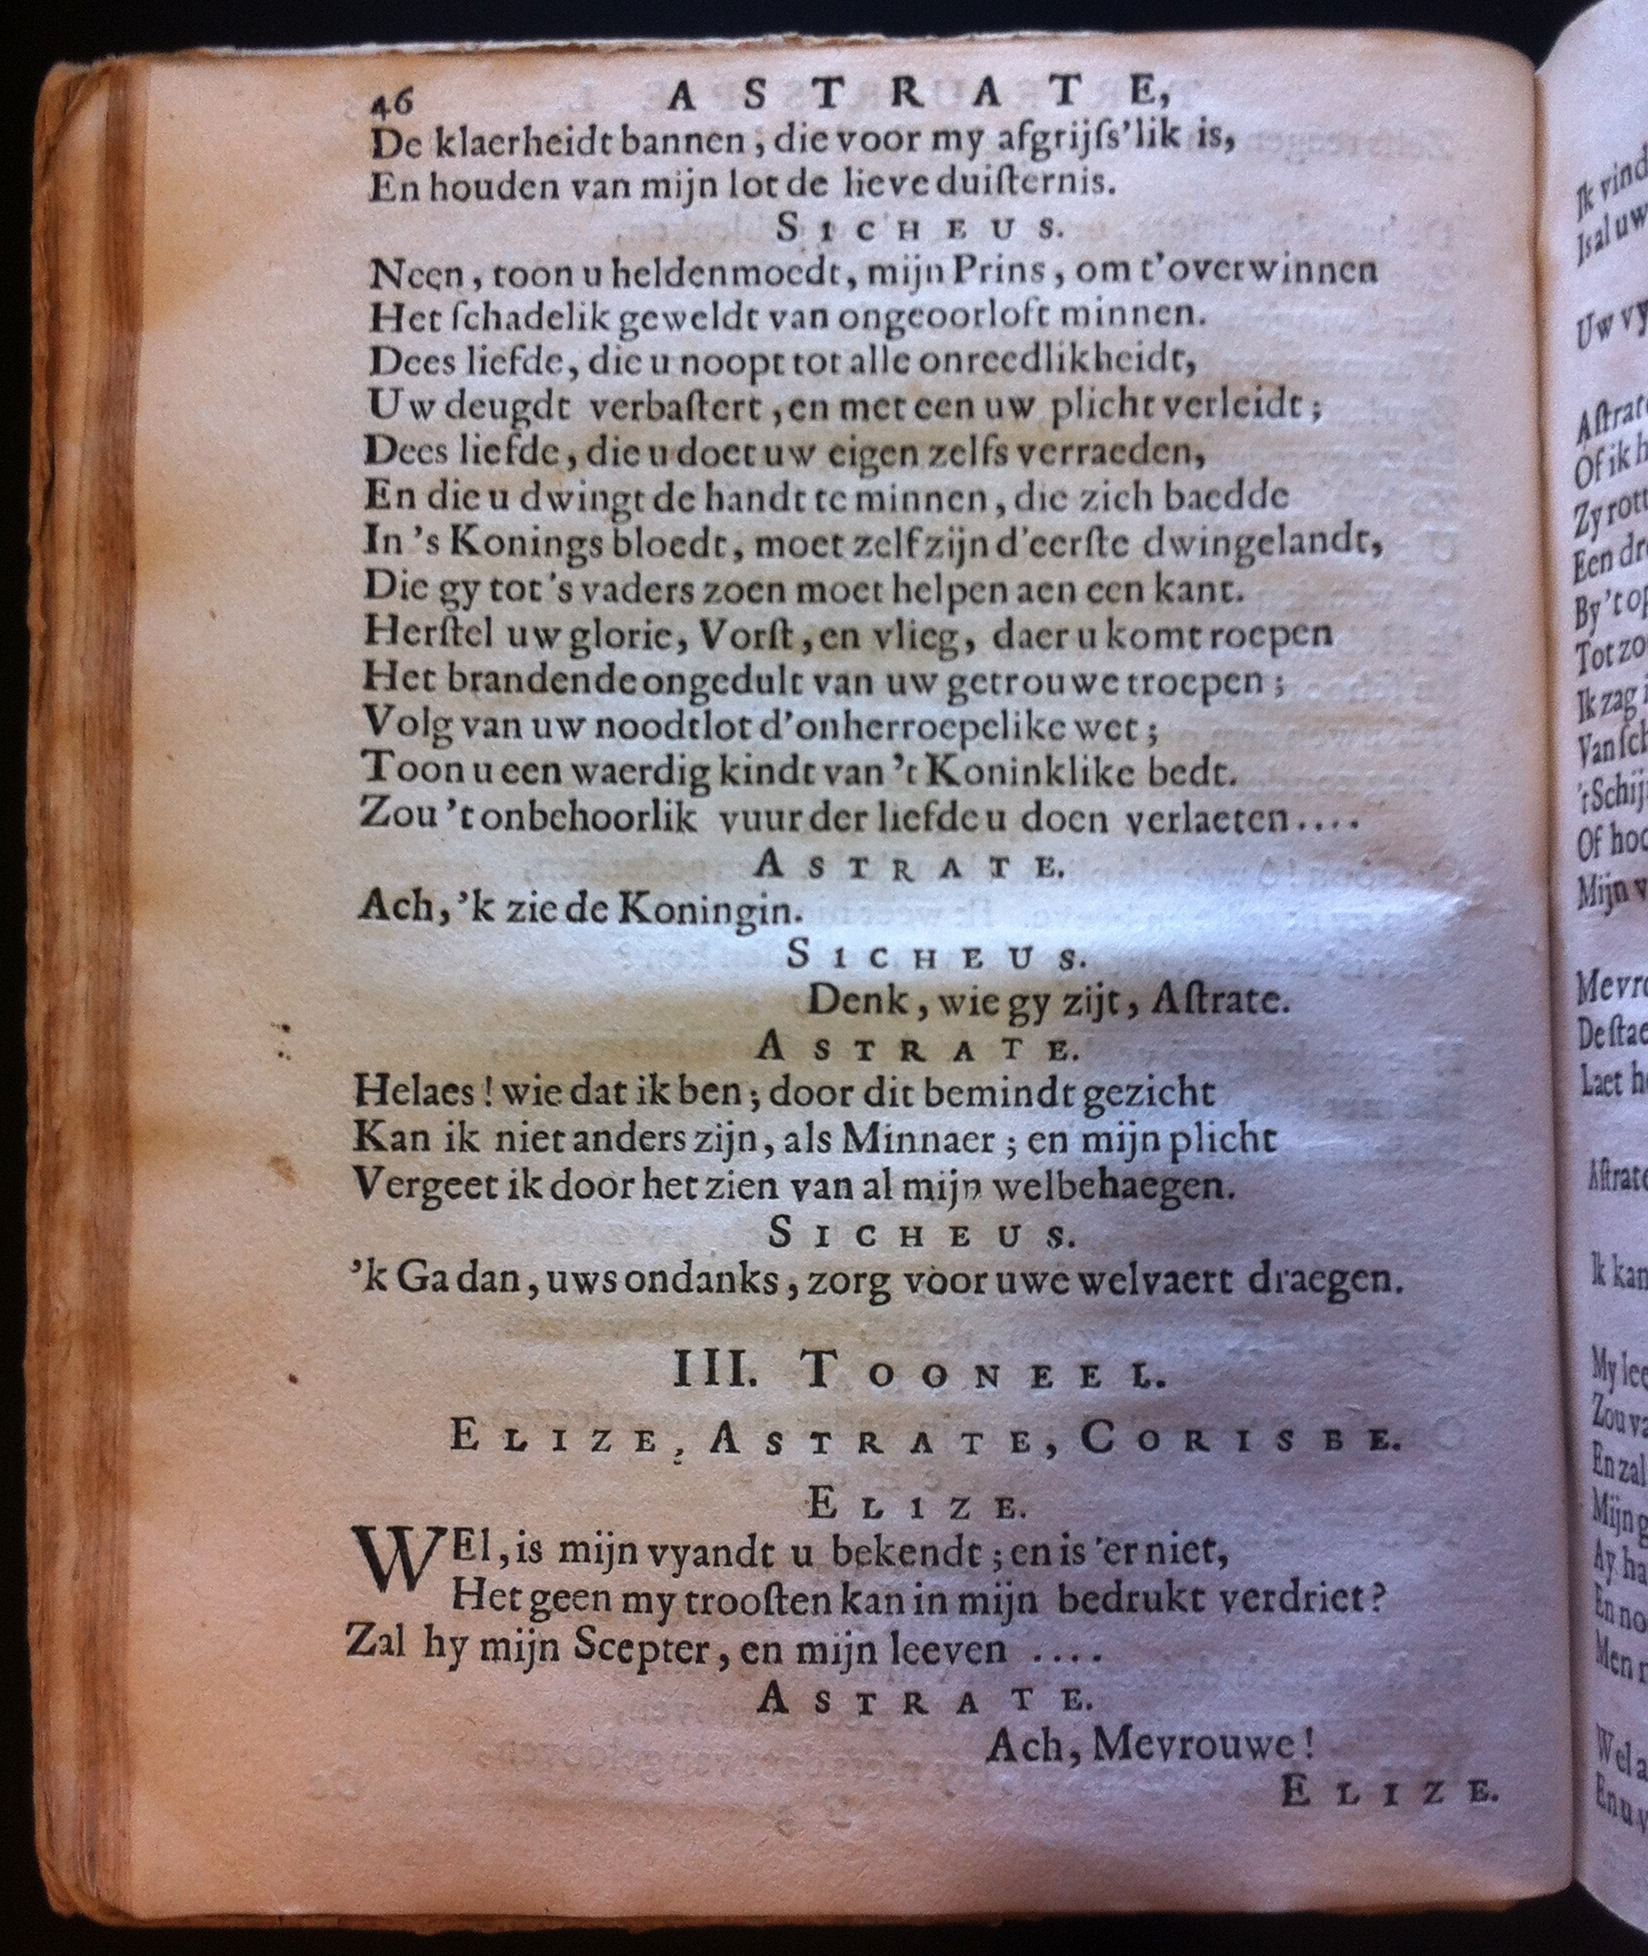 46 ASTRATE,
De klaerheidt bannen, die voor my afgrijſs'lik is,
En houden van mijn lot de lieve duiſternis.
SICHEUS.
Neen, toon u heldenmoedt, mijn Prins, om t'overwinnen
Het ſchadelik geweldt van ongeoorloft minnen.
Dees liefde, die u noopt tot alle onreedlikheidt,
Uw deugdt verbaſtert, en met een uw plicht verleidt;
Dees liefde, die u doet uw eigen zelfs verraeden,
En die u dwingt de handt te minnen, die zich baedde
In 's Konings bloedt, moet zelf zijn d'eerſte dwingelandt,
Die gy tot 's vaders zoen moet helpen aen een kant.
Herſtel uw glorie, Vorſt, en vlieg, daer u komt roepen
Het brandende ongedult van uw getrouwe troepen;
Volg van uw noodtlot d'onherroepelike wet;
Toon u een waerdig kindt van 't Koninklike bedt.
Zou 't onbehoorlik vuur der liefde u doen verlaeten....
ASTRATE.
Ach, 'k zie de Koningin.
SICHEUS.
Denk, wie gy zijt, Aſtrate.
ASTRATE.
Helaes! wie dat ik ben; door dit bemindt gezicht
Kan ik niet anders zijn, als Minnaer; en mijn plicht
Vergeet ik door het zien van al mijn welbehaegen.
SICHEUS.
'k Ga dan, uws ondanks, zorg voor uwe welvaert draegen.
III. TOONEEL.
ELIZE, ASTRATE, CORISBE.
ELIZE.
WEl, is mijn vyandt u bekendt; en is 'er niet,
Het geen my trooſten kan in mijn bedrukt verdriet?
Zal hy mijn Scepter, en mijn leeven ....
ASTRATE.
Ach, Mevrouwe!
ELIZE.
Ik vind
Is al uw
Uw vy
Aſtrat
Of ik h
Zy rott
Een dr
By 't op
Tot zo
Ik zag
Van ſch
't Schij
Of hoo
Mijn v
Mevro
De ſtae
Laet h
Aſtrate
Ik kan
My lee
Zou va
En zal
Mijn g
Ay ha
En no
Men
Wel a
En u v